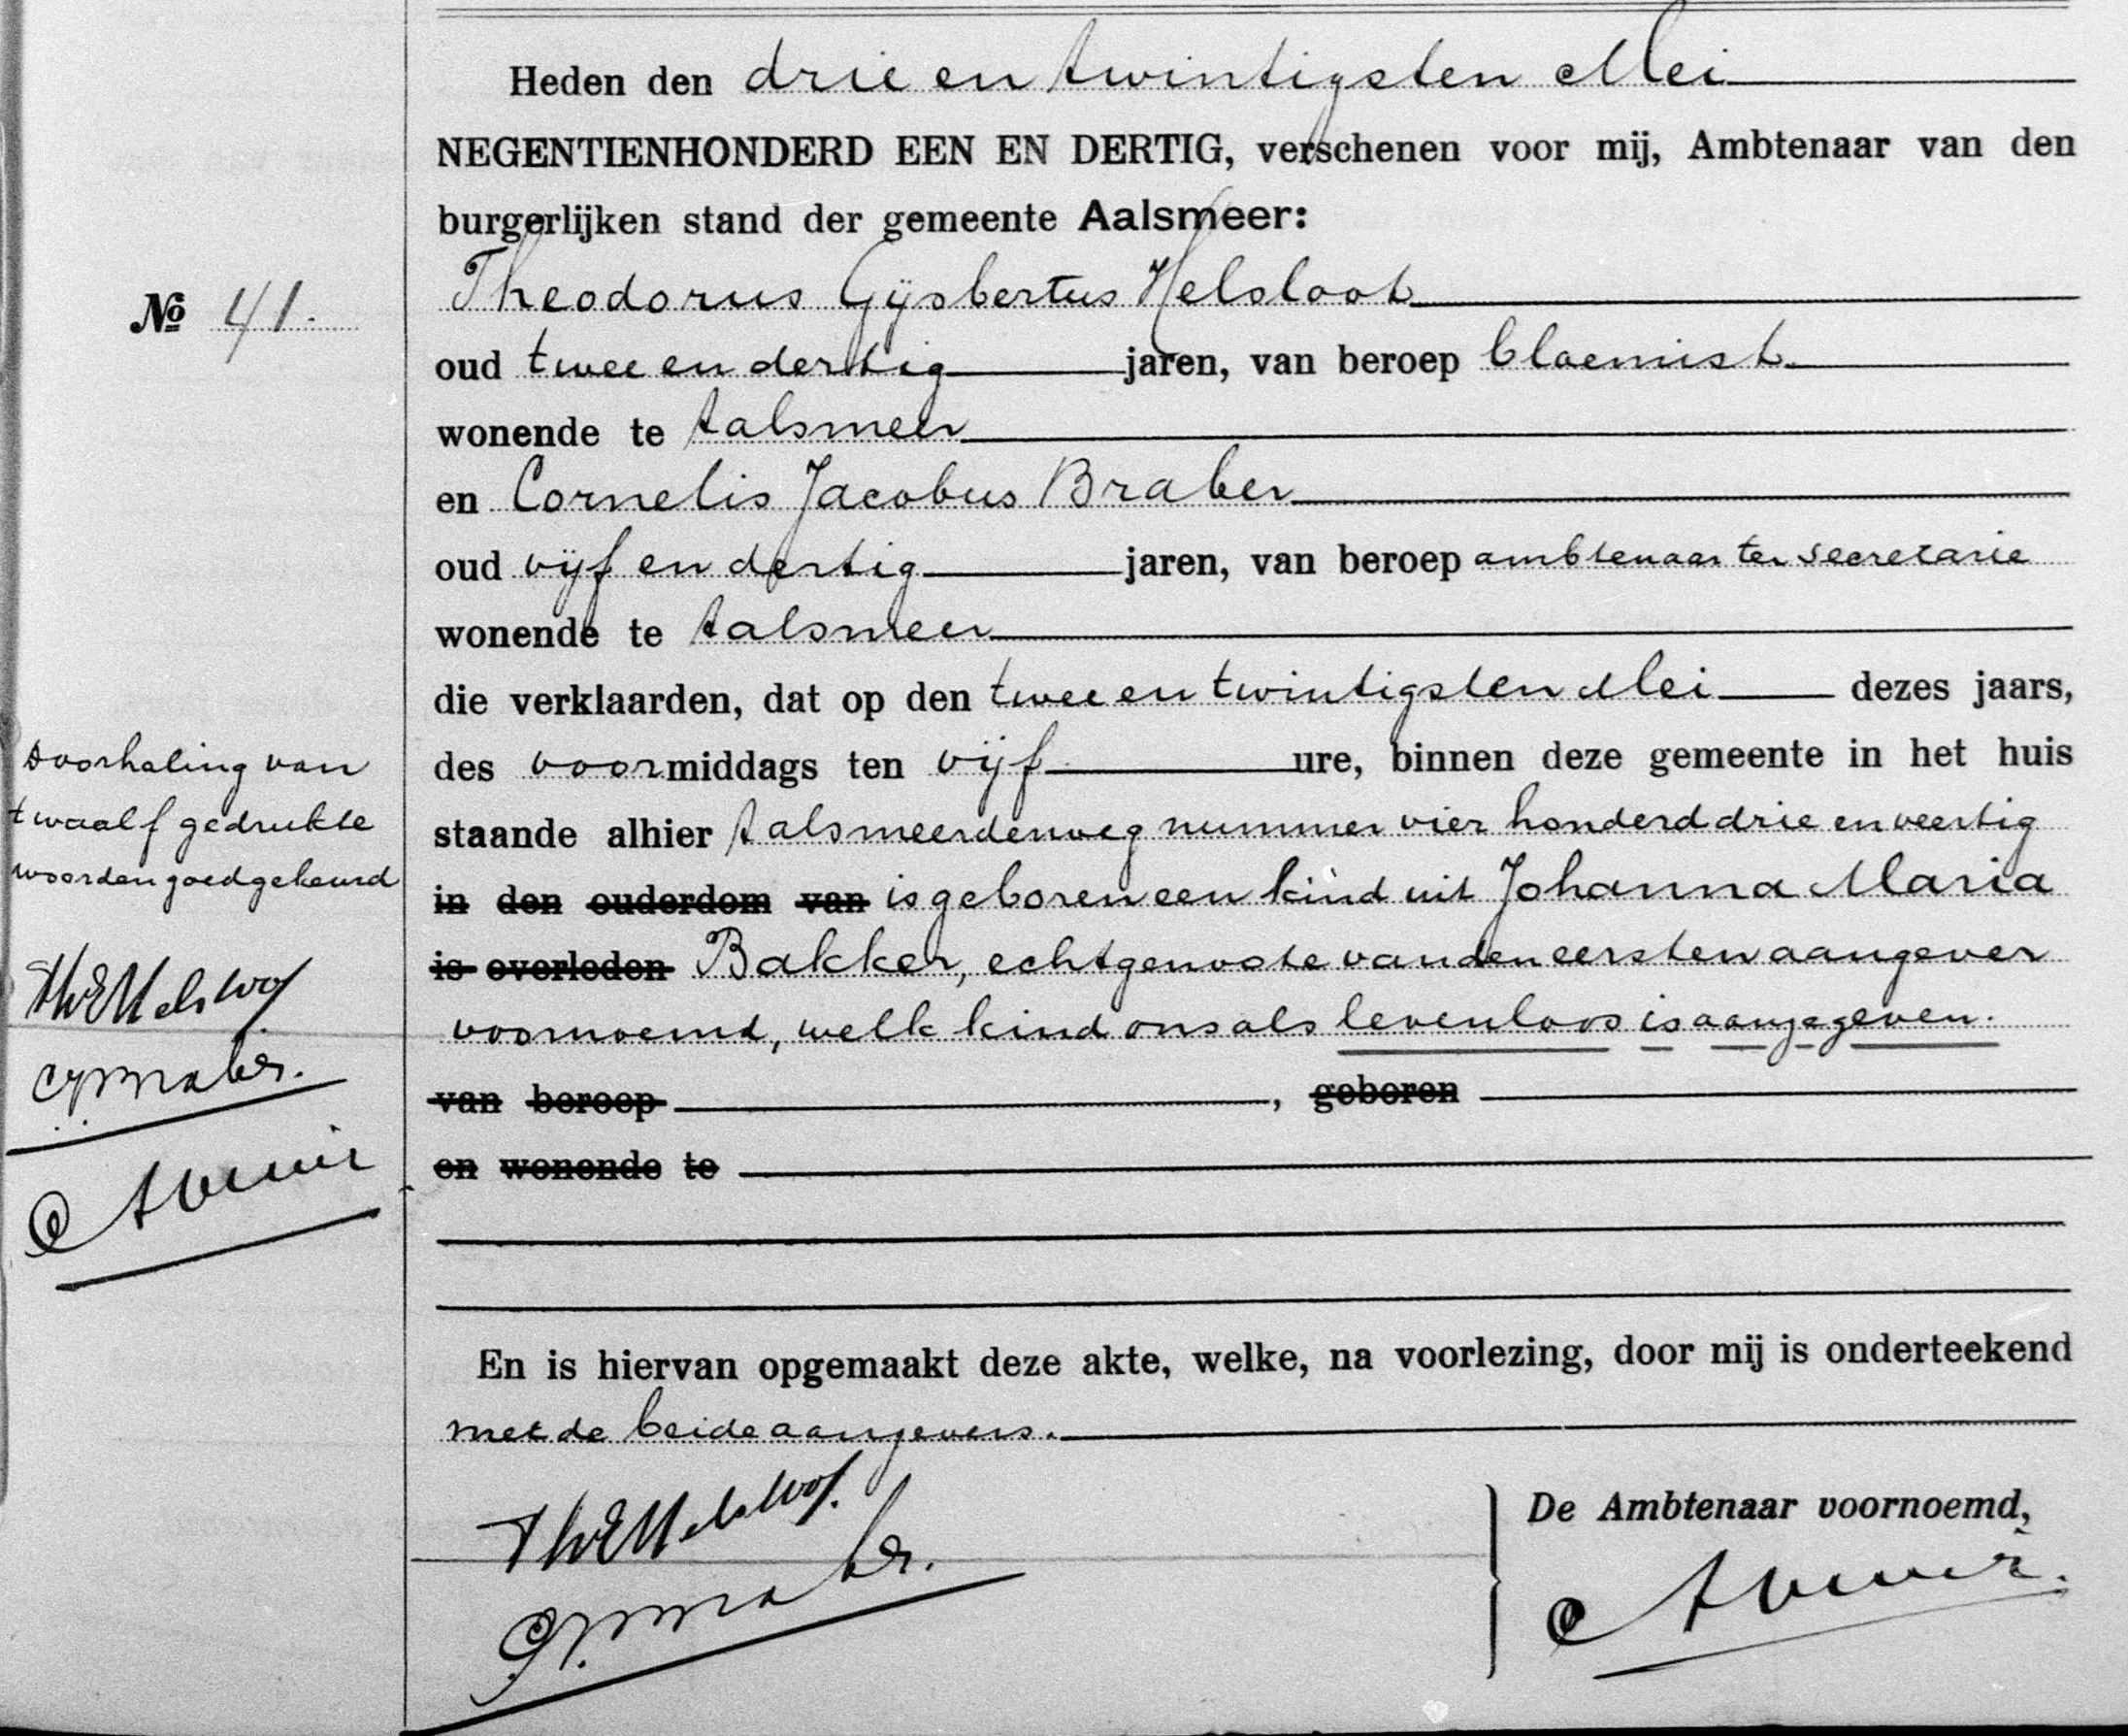 Heden den drie en twintigsten Mei
NEGENTIENHONDERD EEN EN DERTIG, verschenen voor mij, Ambtenaar van den
burgerlijken stand der gemeente Aalsmeer:
No 41.
Theodorus Gijsbertus Helsloot
oud twee en dertig jaren, van beroep bloemist
wonende te Aalsmeer
en Cornelis Jacobus Braber
oud vijf en dertig jaren, van beroep ambtenaar ter secretarie
wonende te Aalsmeer
die verklaarden, dat op den twee en twintigsten Mei dezes jaars,
des voormiddags ten vijf ure, binnen deze gemeente in het huis
staande alhier Aalsmeerderweg nummer vier honderd drie en veertig
in den ouderdom van is geboren een kind uit Johanna Maria
is overleden Bakker, echtgenoote van den eersten aangever
voornoemd, welk kind ons als levenloos is aangegeven.
van beroep , geboren
en wonende te
Doorhaling van
twaalf gedrukte
woorden goedgekeurd
En is hiervan opgemaakt deze akte, welke, na voorlezing, door mij is onderteekend
met de beide aangevers.
De Ambtenaar voornoemd,